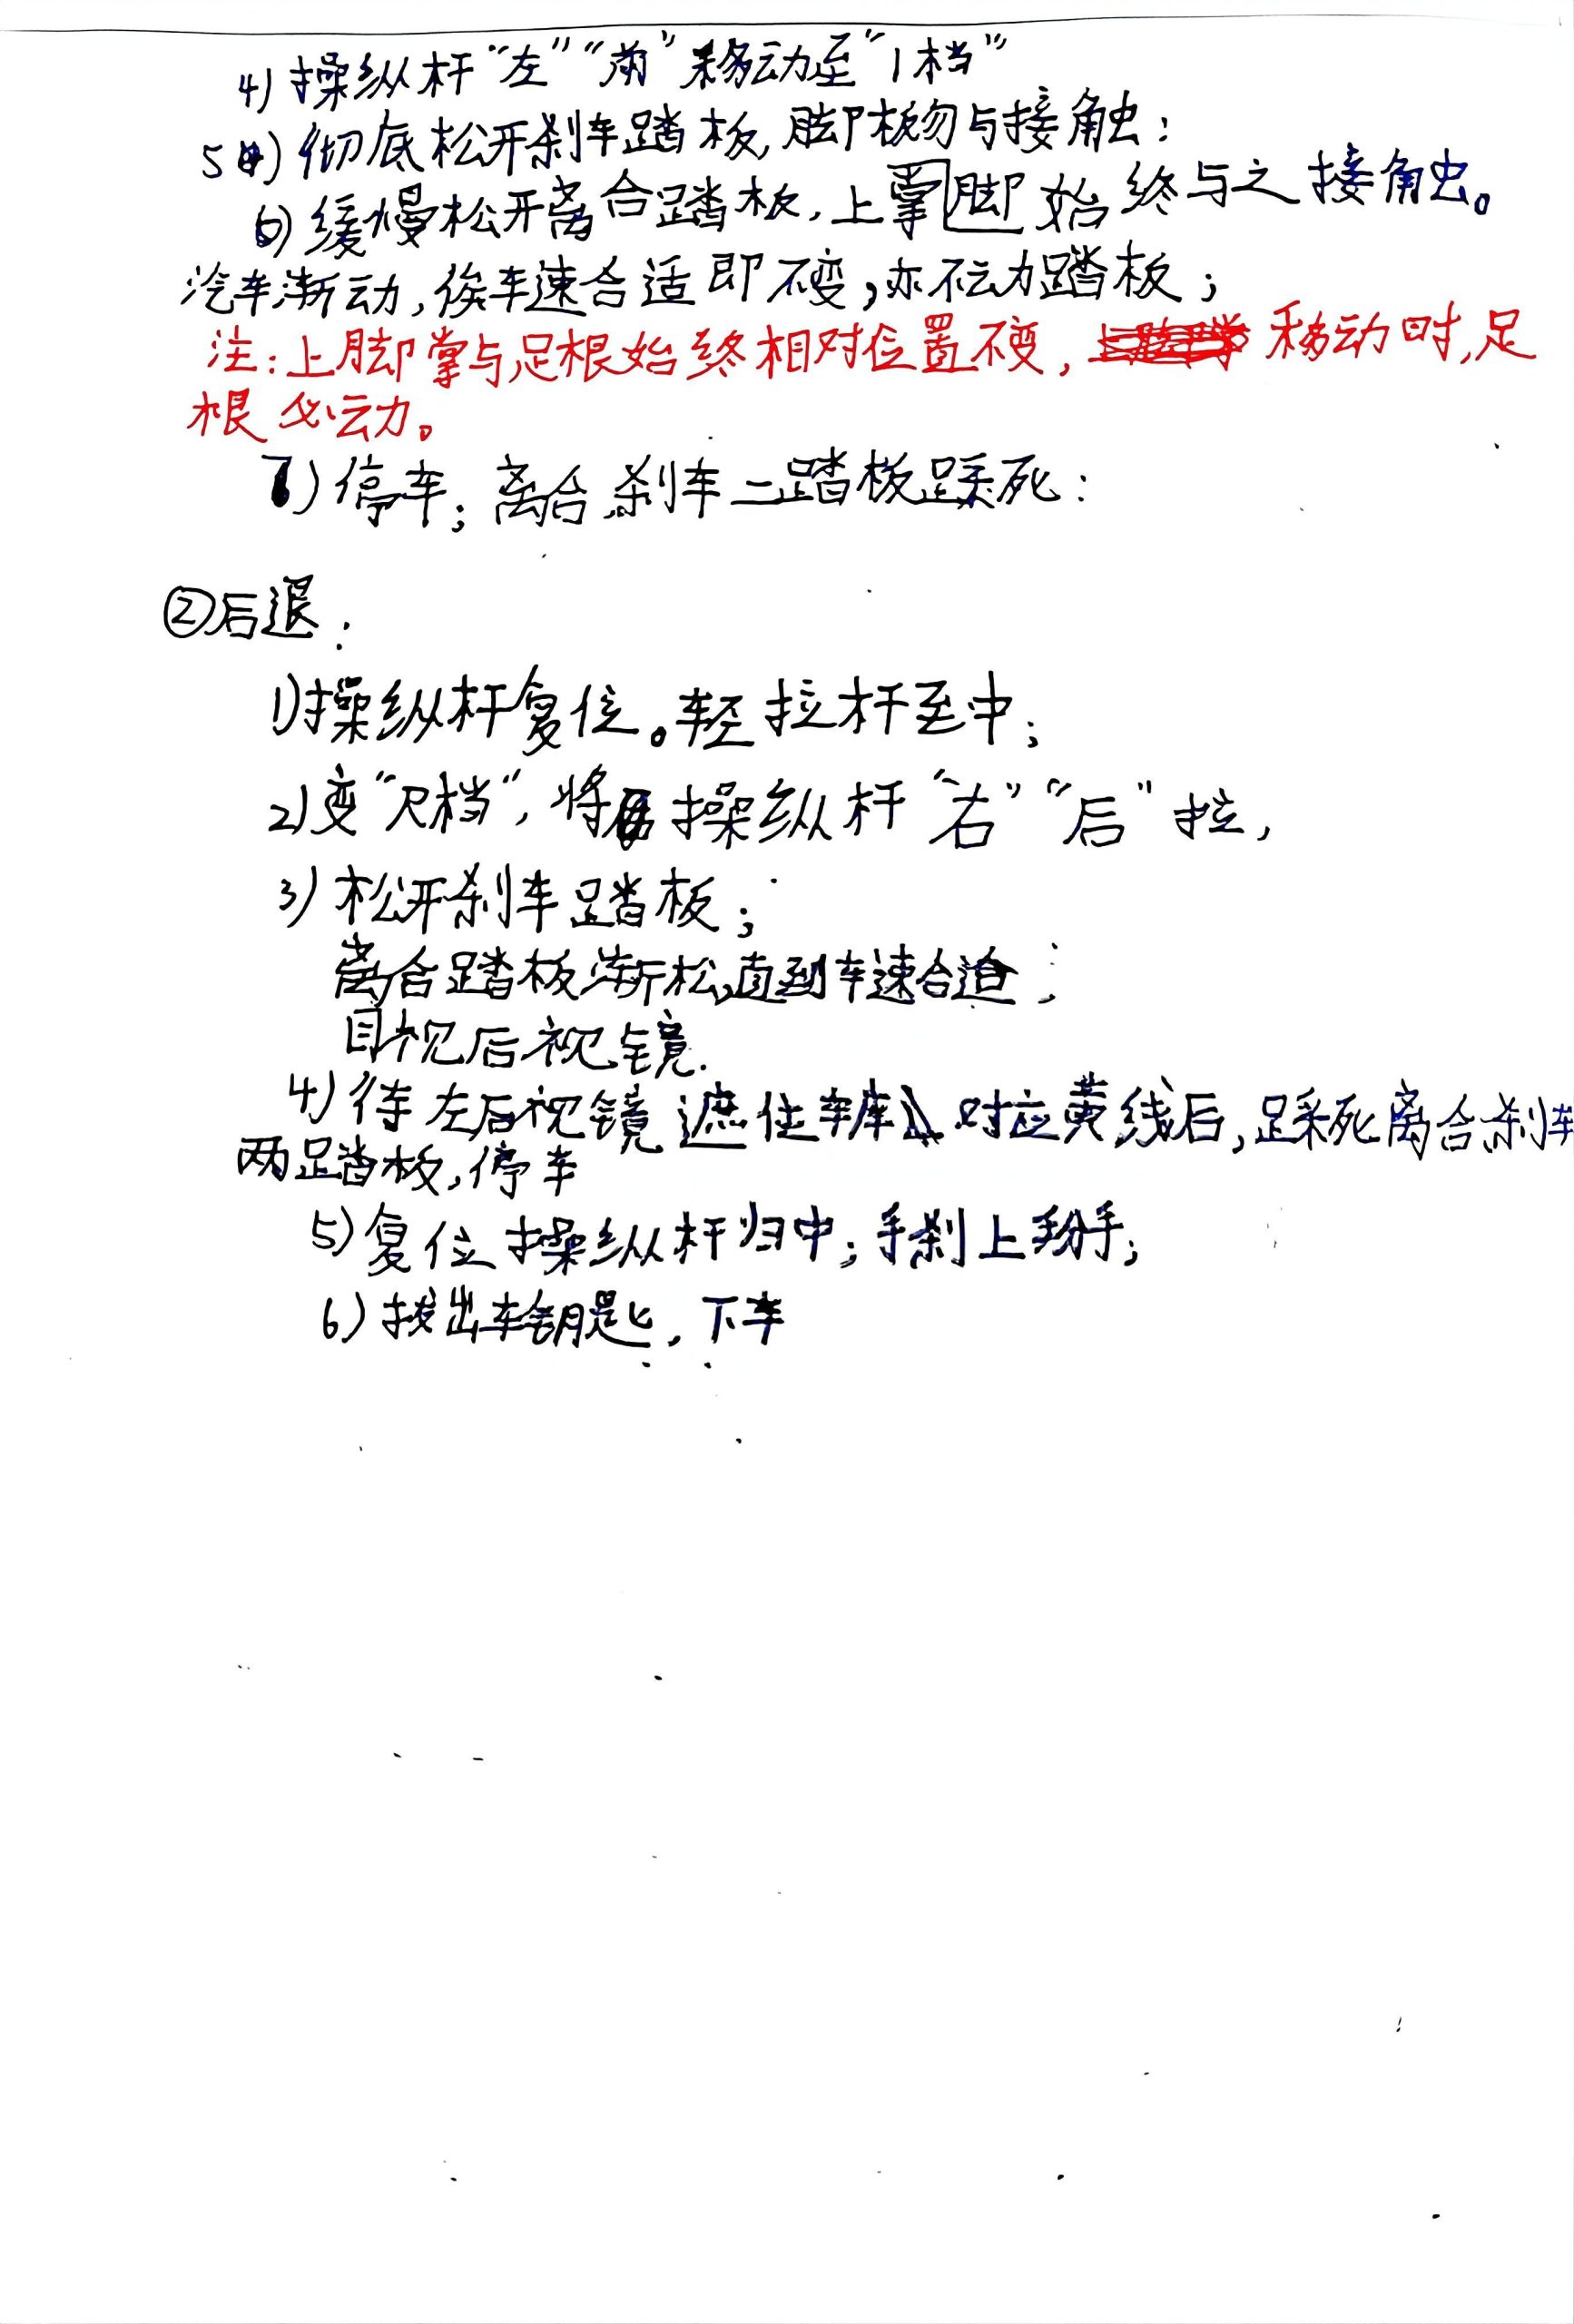 4) 操纵杆“左”“前”移动至“1档”
5) 彻底松开刹车踏板,脚板勿与接触;
6) 缓慢松开离合踏板,上掌脚始终与之接触。
汽车渐动,俟车速合适即不变,亦不动踏板;
注:上脚掌与足根始终相对位置不变,移动时,足
根必动。
7) 停车;离合刹车二踏板踩死:
②后退:
1)操纵杆复位。轻拉杆至中;
2)变“R档”,将操纵杆“右”“后”拉,
3) 松开刹车踏板;
离合踏板渐松,直到车速合适;
目视后视镜.
4) 待左后视镜遮住车库入对应黄线后,踩死离合刹车
两踏板,停车
5) 复位操纵杆归中;手刹上扮手;
6) 拔出车钥匙,下车